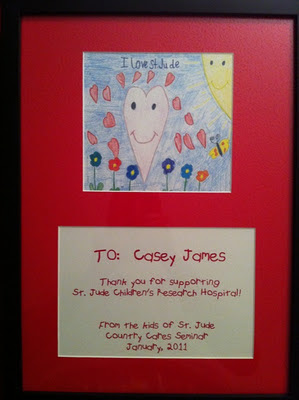 I love st Jude
TO: Casey James
Thank you for supporting
St. Jude Children's Research Hospital!
From the kids of St. Jude
Country Cares Seminar
January, 2011